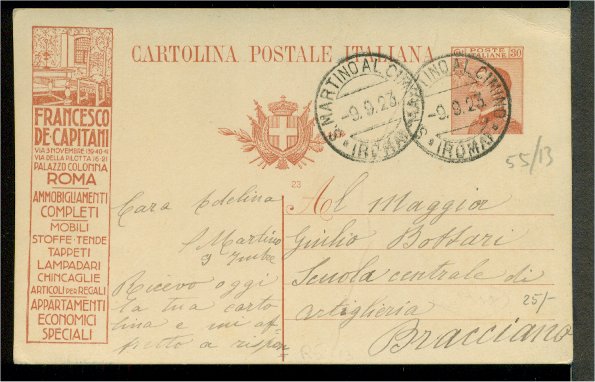 CARTOLINA POSTALE ITALIANA
POSTE ITALIANE 30
FRANCESCO
DE CAPITANI
VIA DELLA PILOTTA 16-21
PALAZZO COLONNA
ROMA
AMMOBIGLIAMENTI
COMPLETI
MOBILI
STOFFE·TENDE
TAPPETI
LAMPADARI
CHINCAGLIE
ARTICOLI PER REGALI
APPARTAMENTI
ECONOMICI
SPECIALI
S. MARTINO AL CIMINO
-9.9.23
(ROMA)
S. MARTINO AL CIMINO
-9.9.23
(ROMA)
55/13
23
Cara Edelina
S Martino
9 7mbre
Ricevo oggi
la tua carto
lina e mi af-
fretto a rispon
Al Maggior
Giulio Bottari
Scuola centrale di
artiglieria
Bracciano
25/-